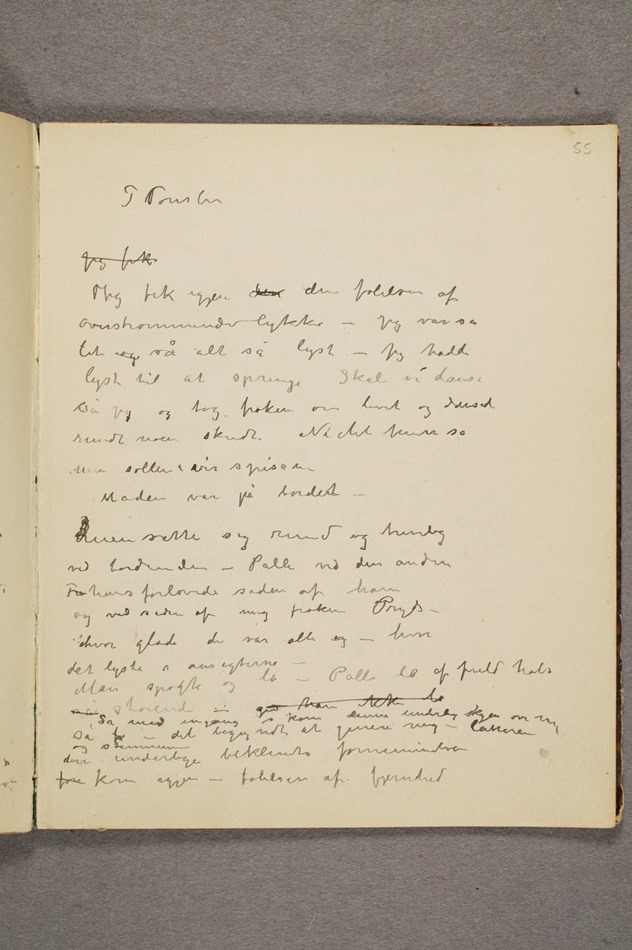 55
~~Jeg fik~~
Jeg fik igjen ~~den~~ den følelsen af
overstrømmende lykke – jeg var så
let og så alt så lyst – jeg hadde
lyst til at springe Skal vi danse
Så jeg og tog frøken om livet og dansed
rundt noen skridt. Nå det fruen sa
nu sollen vi spisen
Maden var på bordet –
Fruen satte sig rund og
ved bordenden – Palle ved den anden
hans forlovede siden af ham
og ved siden af mig frøken –
hvor glade de var alle – hvor
det lyste i ansigterne –
Man spøgte og lo – Palle lo af fuld hals
~~han ikke lo~~
Så med engang så kom denne underlig over mig
Så – det begyndte at genere mig – latteren
og stemmen
den underlige beklemte fornemmelsen
kom igjen – følelsen af fjernhed